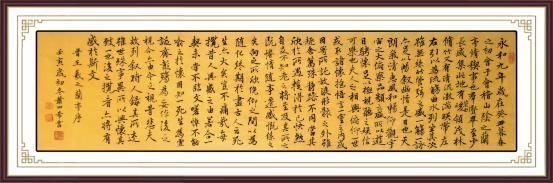 永和九年歲在癸丑暮春
之初會于會稽山陰之蘭
亭脩禊事也群賢畢至少
長咸集此地有崇領茂林
脩竹又有清流激湍暎帶左
右引以為流觴曲水列坐其次
雖無絲竹管弦之盛一觴一詠
亦足以暢敘幽情是日也天
朗氣清惠風和暢仰觀宇
宙之大俯察品類之盛所以遊
目騁懷足以極視聽之娛信
可樂也夫人之相與俯仰一世
或取諸懷抱悟言一室之內或
因寄所託放浪形骸之外雖
趣舍萬殊靜躁不同當其
欣於所遇暫得於己怏然
自足不知老之將至及其所之
既惓情隨事遷感慨係之
矣向之所欣俛仰之間以為
隨化終期於盡古人云死
生亦大矣豈不痛哉每
攬昔人興感之由若合一
契未嘗不臨文嗟悼不能
喻之於懷固知一死生為虛
誕齊彭殤為妄作後之
視今亦由今之視昔悲夫
故列敘時人錄其所述
雖世殊事異所以興懷其
致一也後之攬者亦將有
感於斯文
晉王羲之蘭亭序
壬寅歲初冬